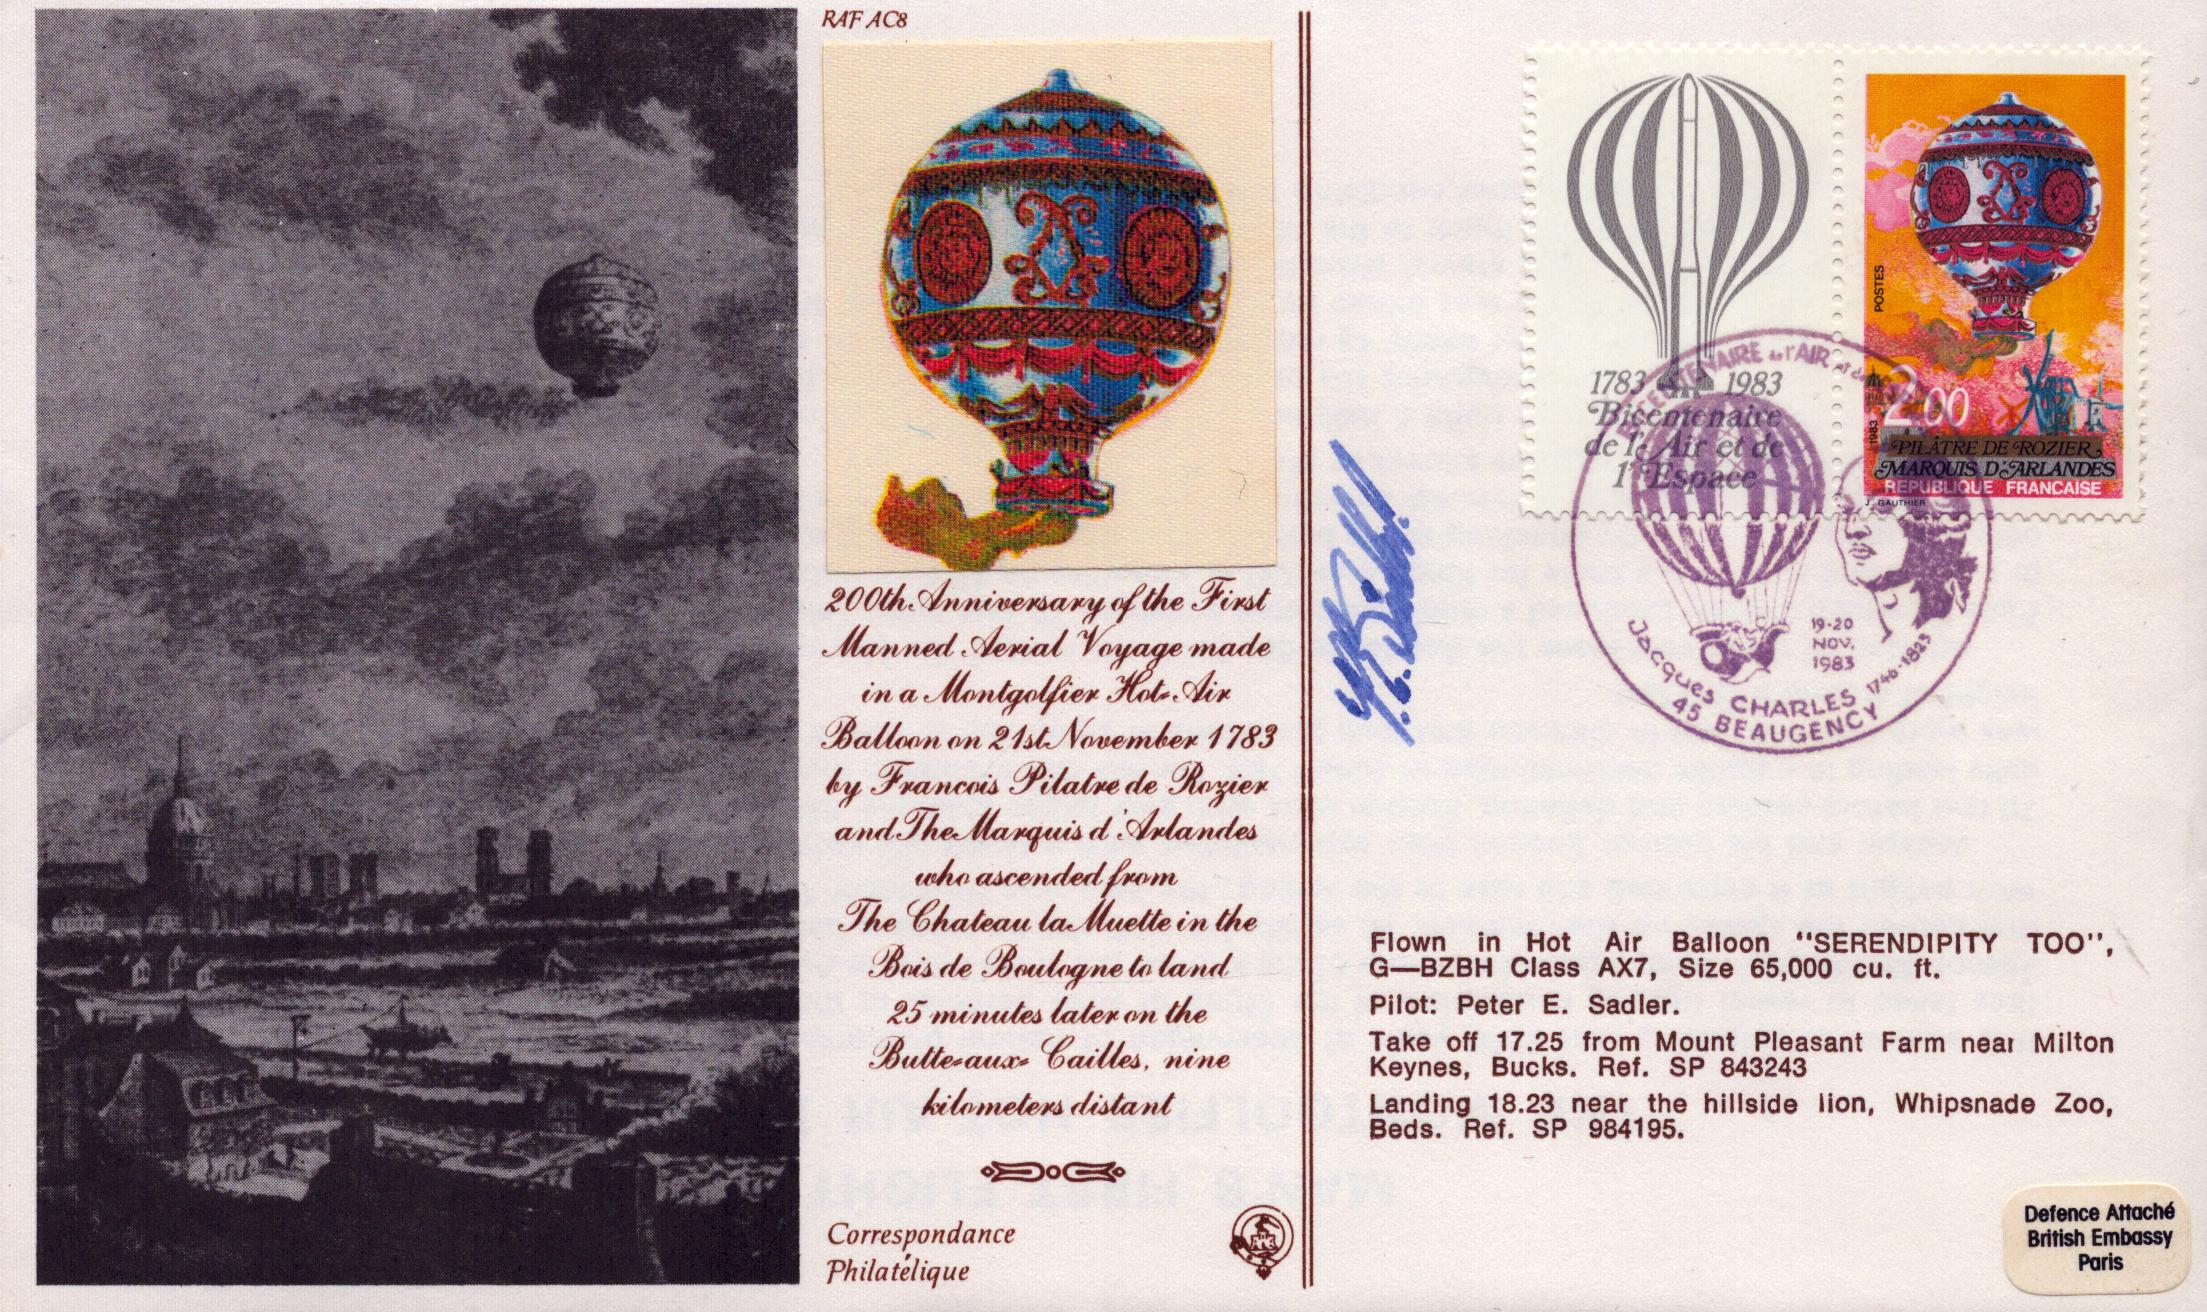 RAF AC8
200th Anniversary of the First
Manned Aerial Voyage made
in a Montgolfier Hot-Air
Balloon on 21st November 1783
by Francois Pilatre de Rozier
and The Marquis d'Arlandes
who ascended from
The Chateau la Muette in the
Bois de Boulogne to land
25 minutes later on the
Butte-aux-Cailles, nine
kilometers distant
Correspondance
Philatélique
1783 1983
Bicentenaire
de l'Air et de
l'Espace
POSTES
1983
2.00
PILÂTRE DE ROZIER
MARQUIS D'ARLANDES
REPUBLIQUE FRANCAISE
J. GAUTHIER
l'AIR et de
19-20
NOV.
1983
Jacques CHARLES 1746-1823
45 BEAUGENCY
Flown in Hot Air Balloon "SERENDIPITY TOO",
G—BZBH Class AX7, Size 65,000 cu. ft.
Pilot: Peter E. Sadler.
Take off 17.25 from Mount Pleasant Farm near Milton
Keynes, Bucks. Ref. SP 843243
Landing 18.23 near the hillside lion, Whipsnade Zoo,
Beds. Ref. SP 984195.
Defence Attaché
British Embassy
Paris